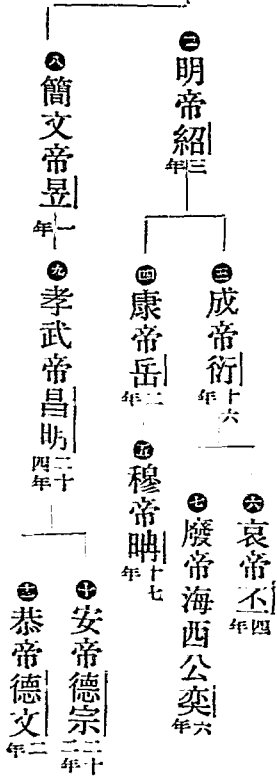 二 明帝紹三年
三 成帝衍十六年
四 康帝岳二年
五 穆帝聃十七年
六 哀帝丕四年
七 廢帝海西公奕六年
八 簡文帝昱一年
九 孝武帝昌明二十四年
十 安帝德宗二十二年
十一 恭帝德文二年